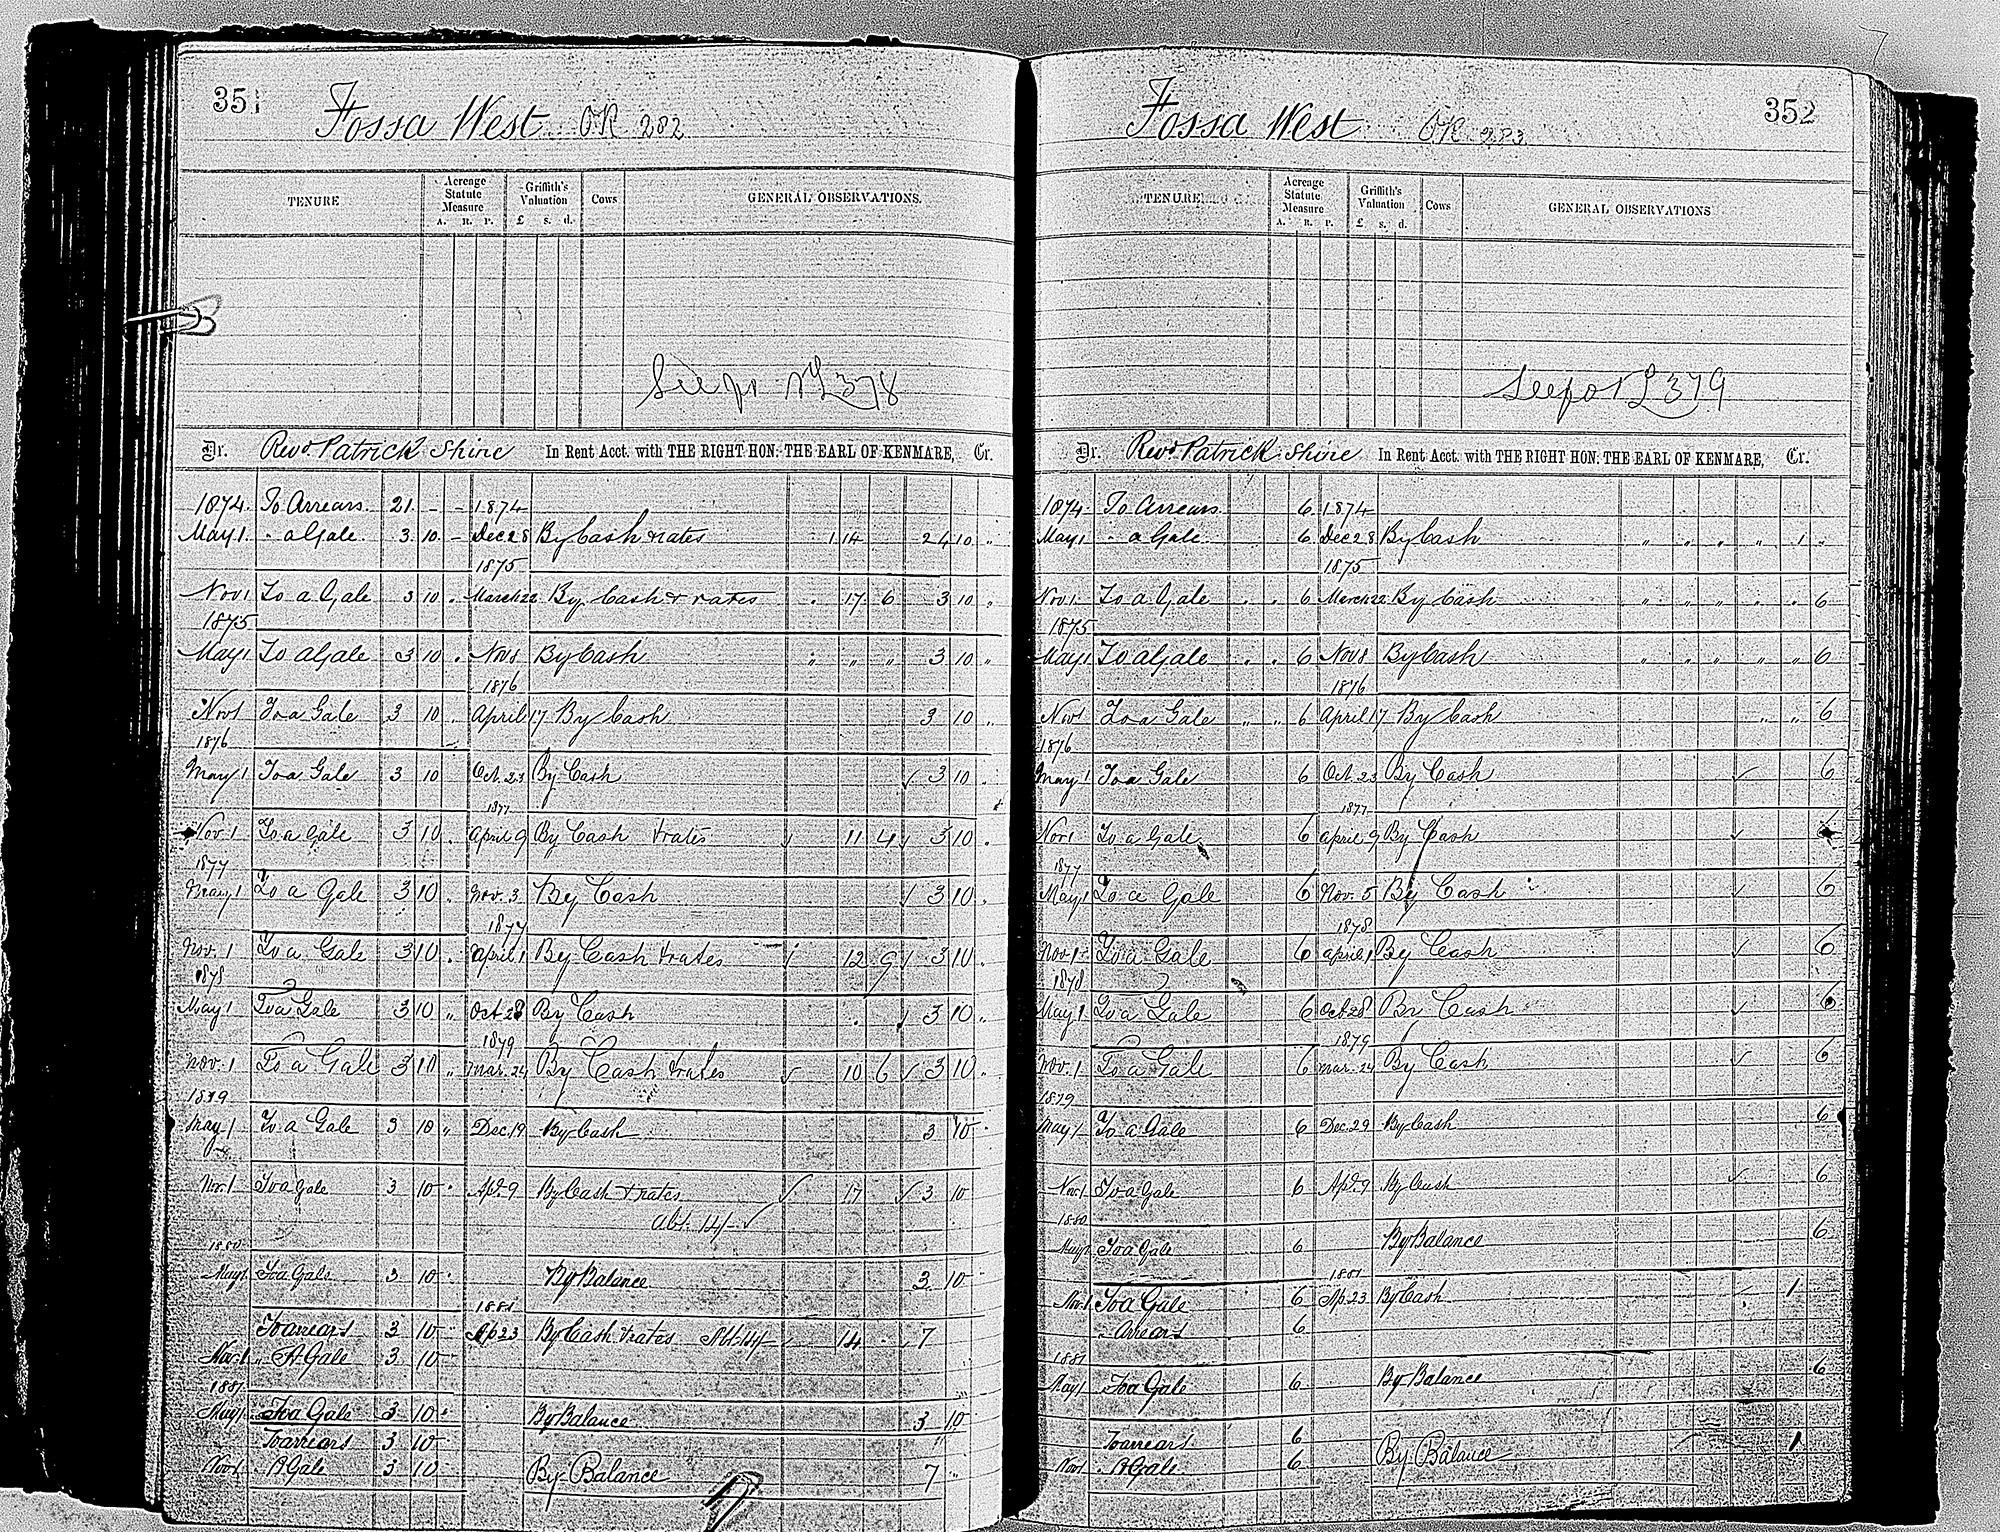 351
Fossa West OR 282
TENURE Acreage Statute Measure A. R. P. Griffith's Valuation £ s. d. Cows GENERAL OBSERVATIONS.
378
Dr. Revd. Patrick Shine In Rent Acct. with THE RIGHT HON: THE EARL OF KENMARE, Cr.
1874. To Arrears. 21 - - 1874
May 1. " a Gale. 3 10 - Dec 28 By Cash & rates 1 14 24 10 "
1875
Nov 1 To a Gale 3 10 . March 22 By Cash & rates . 17 6 3 10 "
1875
May 1 To a Gale 3 10 . Nov 8 By Cash " " " 3 10 "
1876
Nov 1 To a Gale 3 10 . April 17 By Cash 3 10 .
1876
May 1 To a Gale 3 10 Oct. 23 By Cash √ 3 10 .
1877
Nov. 1 To a Gale 3 10 . April 9 By Cash & rates √ 11 4 √ 3 10 .
1877
May 1 To a Gale 3 10 . Nov. 3 By Cash √ 3 10 .
1877
Nov. 1 To a Gale 3 10 . April 1 By Cash & rates √ 12 9 √ 3 10 .
1878
May 1 To a Gale 3 10 " Oct. 28 By Cash . √ 3 10 "
1879
Nov. 1 To a Gale 3 10 " Mar. 24 By Cash & rates √ 10 6 √ 3 10 .
1879
May 1 To a Gale 3 10 " Dec. 19 By Cash 3 10 .
Nov. 1 To a Gale 3 10 . Apl. 9 By Cash & rates √ 17 √ 3 10
Abt. 14/- √
1880
May 1 To a Gale 3 10 . By Balance 3 10
1881
To arrears 3 10 . Ap 23 By Cash & rates Abt 14/- √ 14 √ 7
Nov. 1 " A Gale 3 10
1881
May 1 To a Gale 3 10 . By Balance 3 10
To arrears 3 10
Nov 1 A Gale 3 10 By Balance 7 "
352
Fossa West OR 283
TENURE Acreage Statute Measure A. R. P. Griffith's Valuation £ s. d. Cows GENERAL OBSERVATIONS
379
Dr. Revd. Patrick Shine In Rent Acct. with THE RIGHT HON: THE EARL OF KENMARE, Cr.
1874. To Arrears. 6 1874
May 1 " a Gale. 6 Dec 28 By Cash " " " " 1 "
1875
Nov 1. To a Gale . . 6 March 22 By Cash " " " " . 6
1875
May 1 To a Gale . . 6 Nov 8 By Cash " " " " " 6
1876
Nov 1 To a Gale " " 6 April 17 By Cash " " 6
1876
May 1 To a Gale 6 Oct. 23 By Cash √ 6
1877
Nov 1 To a Gale 6 April 9 By Cash √ 6
1877
May 1 To a Gale 6 Nov. 5 By Cash √ 6
1878
Nov. 1 To a Gale 6 April 1 By Cash √ 6
1878
May 1 To a Gale 6 Oct. 28 By Cash √ 6
1879
Nov. 1 To a Gale 6 Mar. 24 By Cash √ 6
1879
May 1 To a Gale 6 Dec. 29 By Cash 6
Nov. 1 To a Gale 6 Apl. 9 By Cash √ 6
1880
May 1 To a Gale 6 By Balance 6
1881
Nov. 1 To a Gale 6 Ap. 23 By Cash √ 1
Arrears 6
1881
May 1 To a Gale 6 By Balance 6
To arrears 6
Nov 1 A Gale 6 By Balance 1